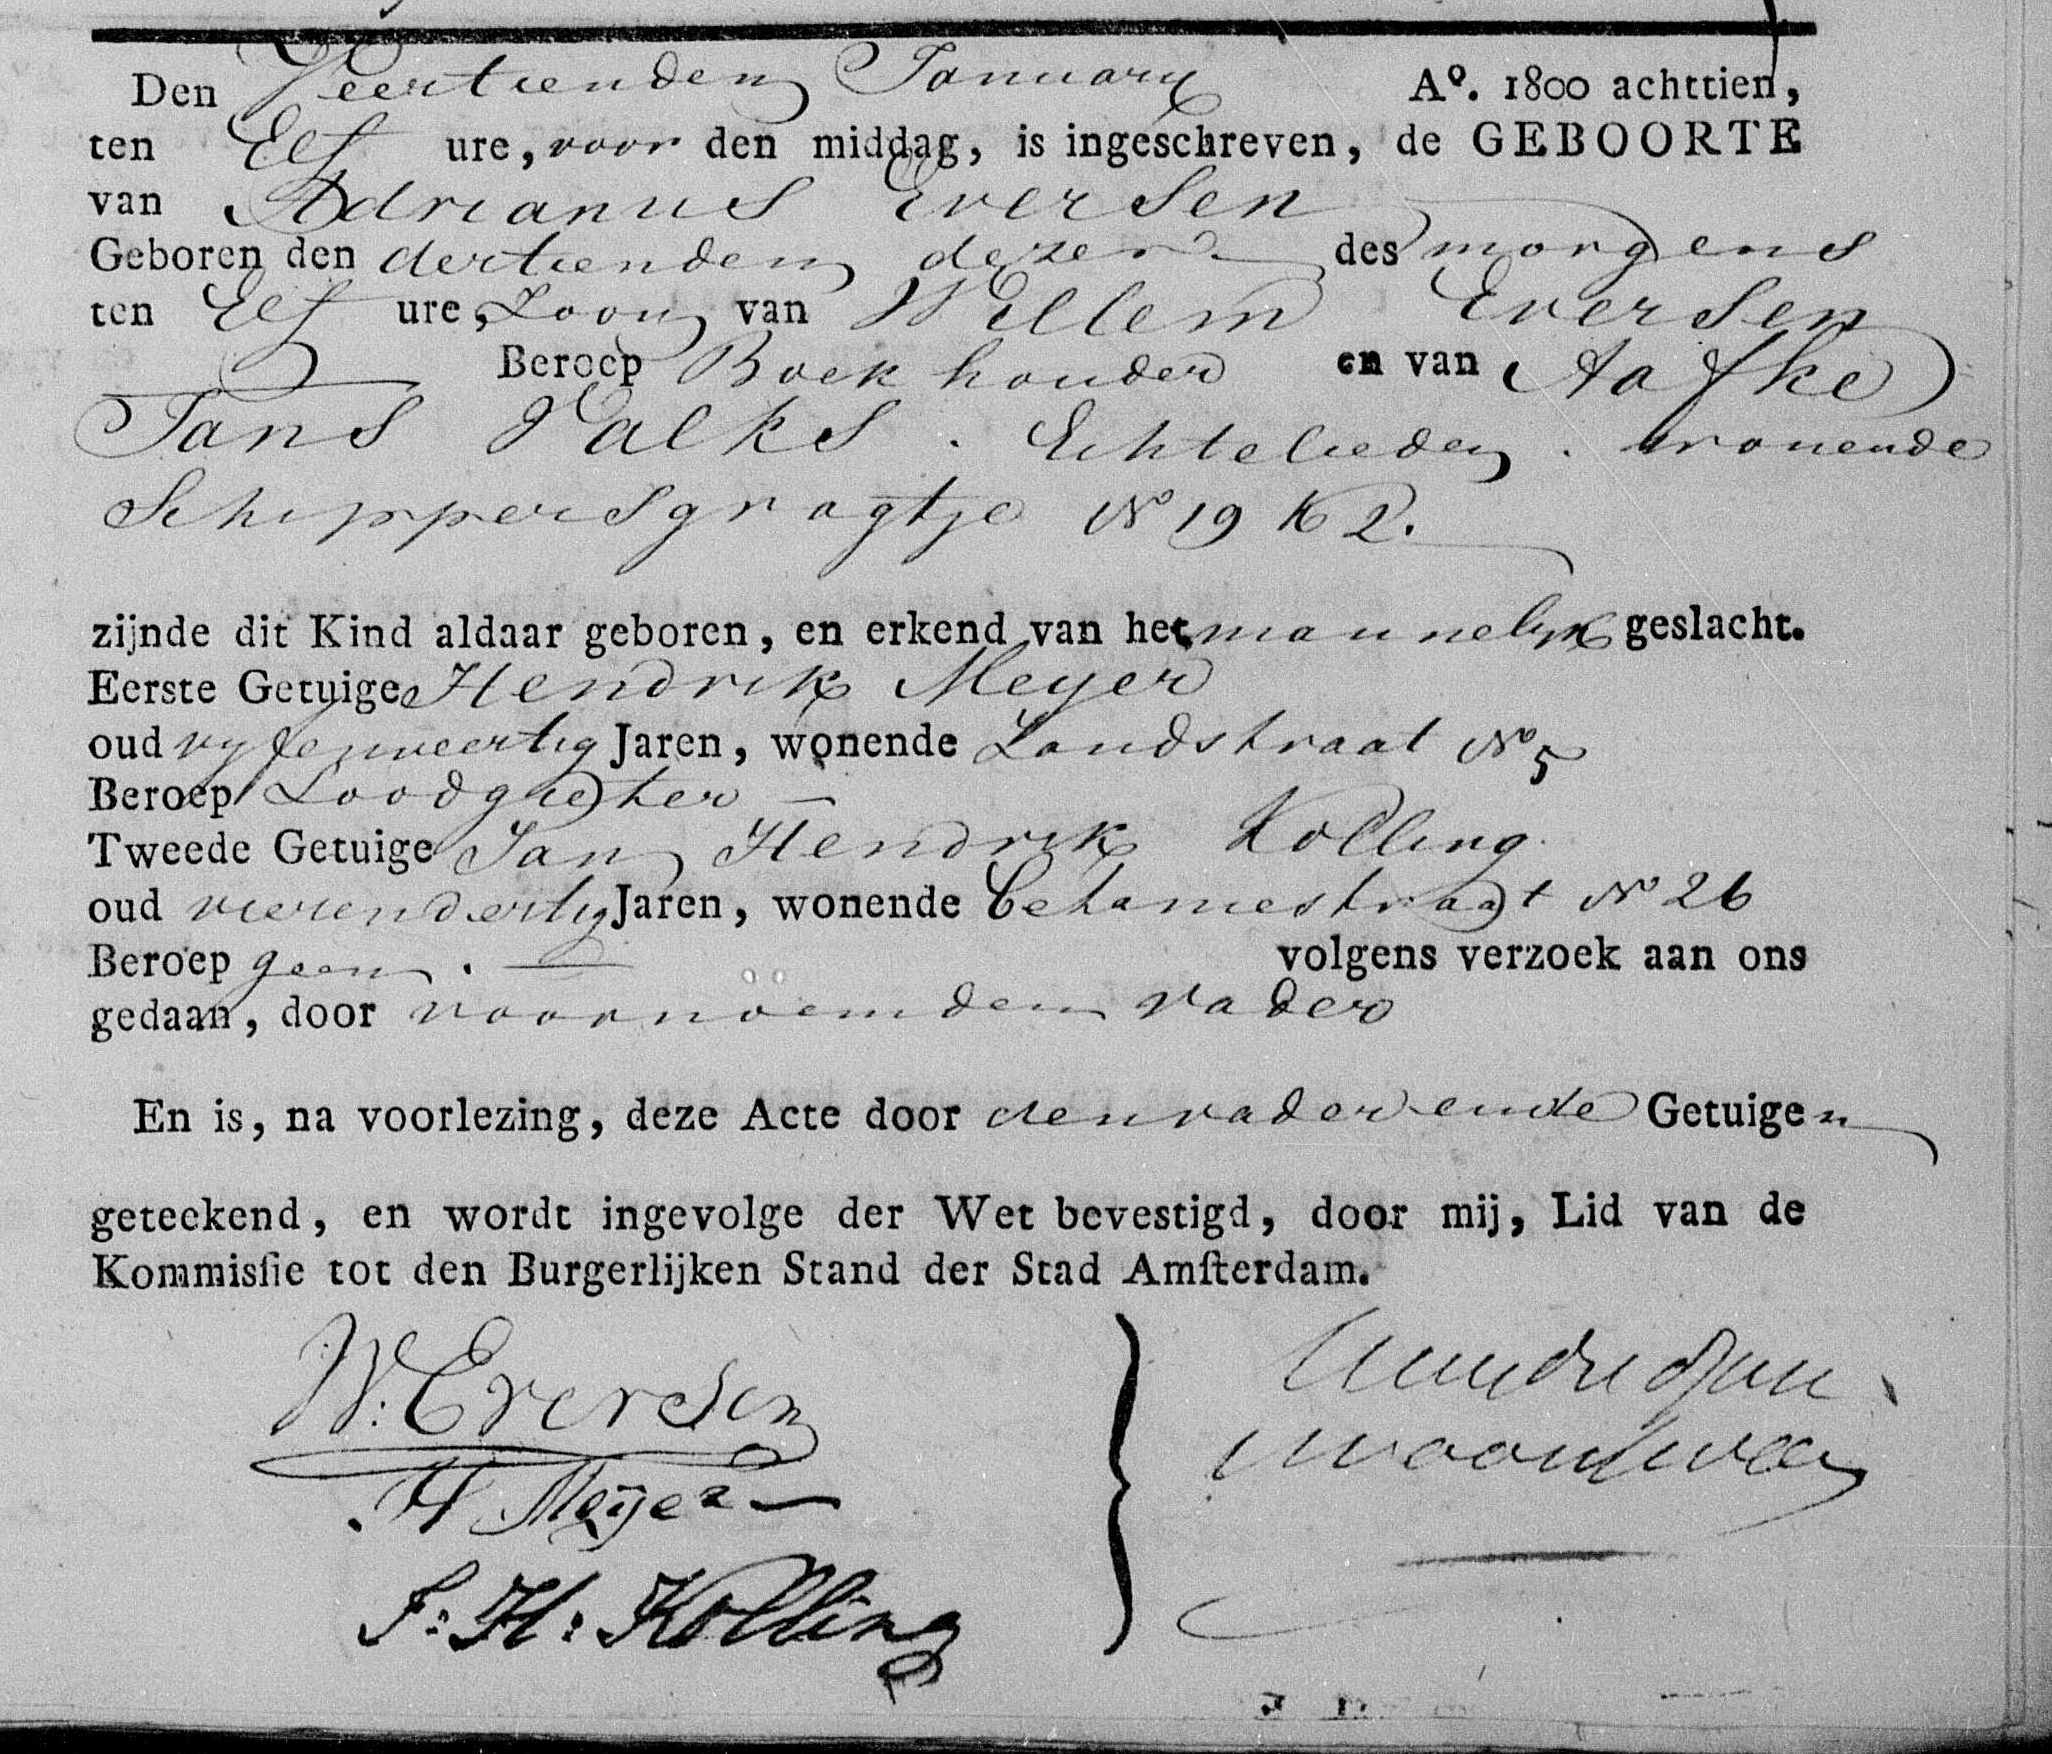 Den Veertienden January Aº. 1800 achttien,
ten Elf ure, voor den middag, is ingeschreven, de GEBOORTE
van Adrianus Eversen
Geboren den dertienden dezer des morgens
ten Elf ure, Zoon van Willem Eversen
Beroep Boekhouder en van Aafke
Jans Valks. Echtelieden. wonende
Schippersgragtje Nº 19 K 2.
zijnde dit Kind aldaar geboren, en erkend van het mannelyk geslacht.
Eerste Getuige Hendrik Meyer
oud vyfenveertig Jaren, wonende Zandstraat Nº 5
Beroep Loodgieter
Tweede Getuige Jan Hendrik Kolling
oud vierendertig Jaren, wonende Betaniestraat Nº 26
Beroep geen. volgens verzoek aan ons
gedaan, door voornoemden vader
En is, na voorlezing, deze Acte door den vader en de Getuigen
geteekend, en wordt ingevolge der Wet bevestigd, door mij, Lid van de
Kommisſie tot den Burgerlijken Stand der Stad Amſterdam.
W. Eversen
H Meÿer
J: H: Kolling